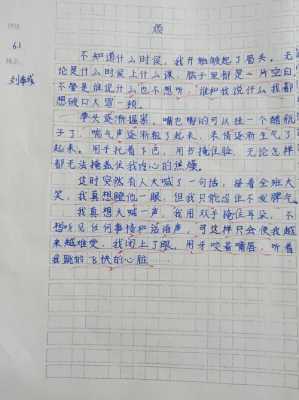 班级
6.1
姓名
烦
不知道什么时候,我开始皱起了眉头。无
论是什么时候上什么课,脑子里都是一片空白,
不管是谁说什么也不想听,谁和我说什么我都
想破口大骂一顿。
拳头逐渐握紧,嘴巴嘟的可以挂一个醋瓶
子了,喘气声逐渐粗了起来,表情逐渐生气了
起来。用手托着下巴,用书掩住脸,无论怎样
都无法掩盖住我内心的焦燥。
这时突然有人大喊了一句话,接着全班大
笑,我真想瞪他一眼,但我只能忍住不发脾气。
我真想大喊一声,我用双手掩住耳朵,不
想听见任何事情和说话声,可这样只会使我越
来越难受,我闭上了眼,用牙咬着嘴唇,听着
我跳的飞快的心脏